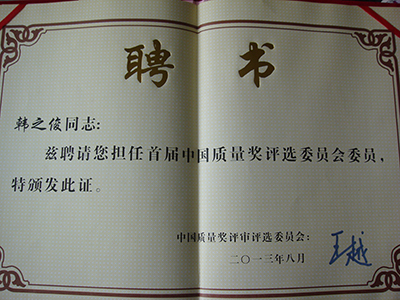 聘书
韩之俊同志:
兹聘请您担任首届中国质量奖评选委员会委员,
特颁发此证。
中国质量奖评审评选委员会:
王越
二〇一三年八月